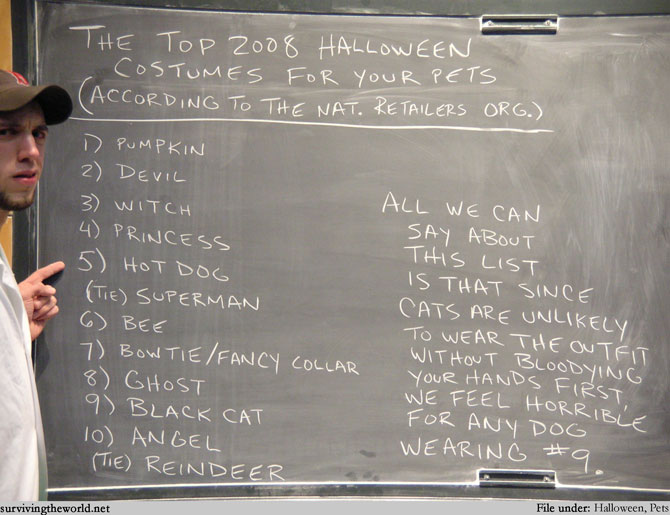 THE TOP 2008 HALLOWEEN
COSTUMES FOR YOUR PETS
(ACCORDING TO THE NAT. RETAILERS ORG.)
1) PUMPKIN
2) DEVIL
3) WITCH
4) PRINCESS
5) HOT DOG
(TIE) SUPERMAN
6) BEE
7) BOWTIE/FANCY COLLAR
8) GHOST
9) BLACK CAT
10) ANGEL
(TIE) REINDEER
ALL WE CAN
SAY ABOUT
THIS LIST
IS THAT SINCE
CATS ARE UNLIKELY
TO WEAR THE OUTFIT
WITHOUT BLOODYING
YOUR HANDS FIRST,
WE FEEL HORRIBLE
FOR ANY DOG
WEARING #9.
survivingtheworld.net
File under: Halloween, Pets